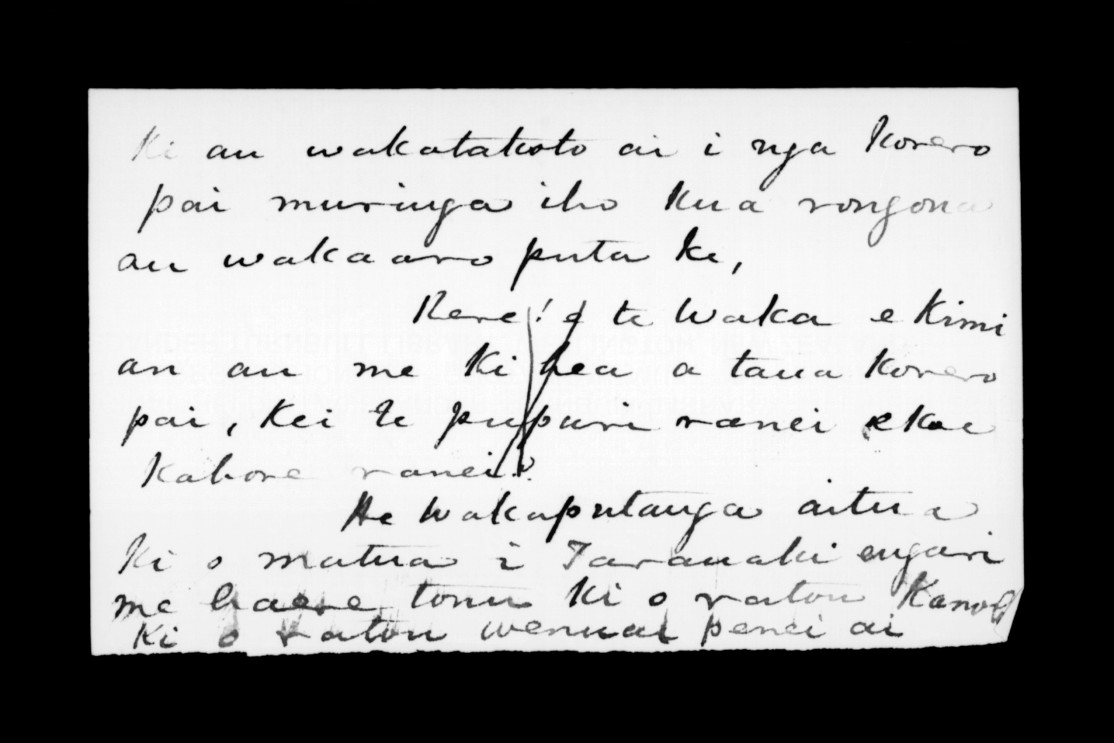 Ki au wakatakoto ai i nga Korero
pai muringa iho Kua rongona
au wakaaro puta ke,
Rere! e te Waka e Kimi
an au me Ki hea a taua Korero
pai, Kei te pupuri ranei e koe
Kahore ranei?
He Wakaputanga aitua
Ki o matua i Taranaki engari
me haere tonu Ki o ratou Kanohi
Ki o ratou wenuai penei ai